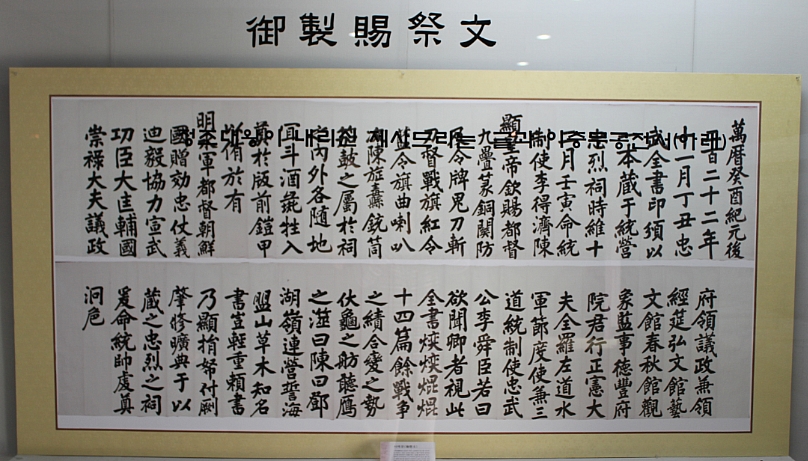 御製賜祭文
萬曆癸酉紀元後
百二十二年
十一月丁丑忠
武全書印頒以
本藏于統營
忠烈祠時維十
月壬寅命統
制使李得濟陳
顯皇帝欽賜都督
九疊篆銅關防
令牌鬼刀斬
刀督戰旗紅令
藍令旗曲喇叭
陳旌纛銃筒
鼓之屬於祠
之內外各隨地
宜斗酒彘牲入
奠於版前鎧甲
以侑於有
明水軍都督朝鮮
國贈効忠仗義
迪毅協力宣武
功臣大匡輔國
崇祿大夫議政
府領議政兼領
經筵弘文館藝
文館春秋館觀
象監事德豐府
院君行正憲大
夫全羅左道水
軍節度使兼三
道統制使忠武
公李舜臣若曰
欲聞卿者視此
全書煐煐焜焜
十四篇餘戰事
之績合變之勢
伏龜之舫聽鴈
之澨曰陳曰鄧
湖嶺連營誓海
盟山草木知名
書豈輕重賴書
乃顯捐帑付剞
肇修曠典于以
藏之忠烈之祠
爰命統帥虔奠
泂卮